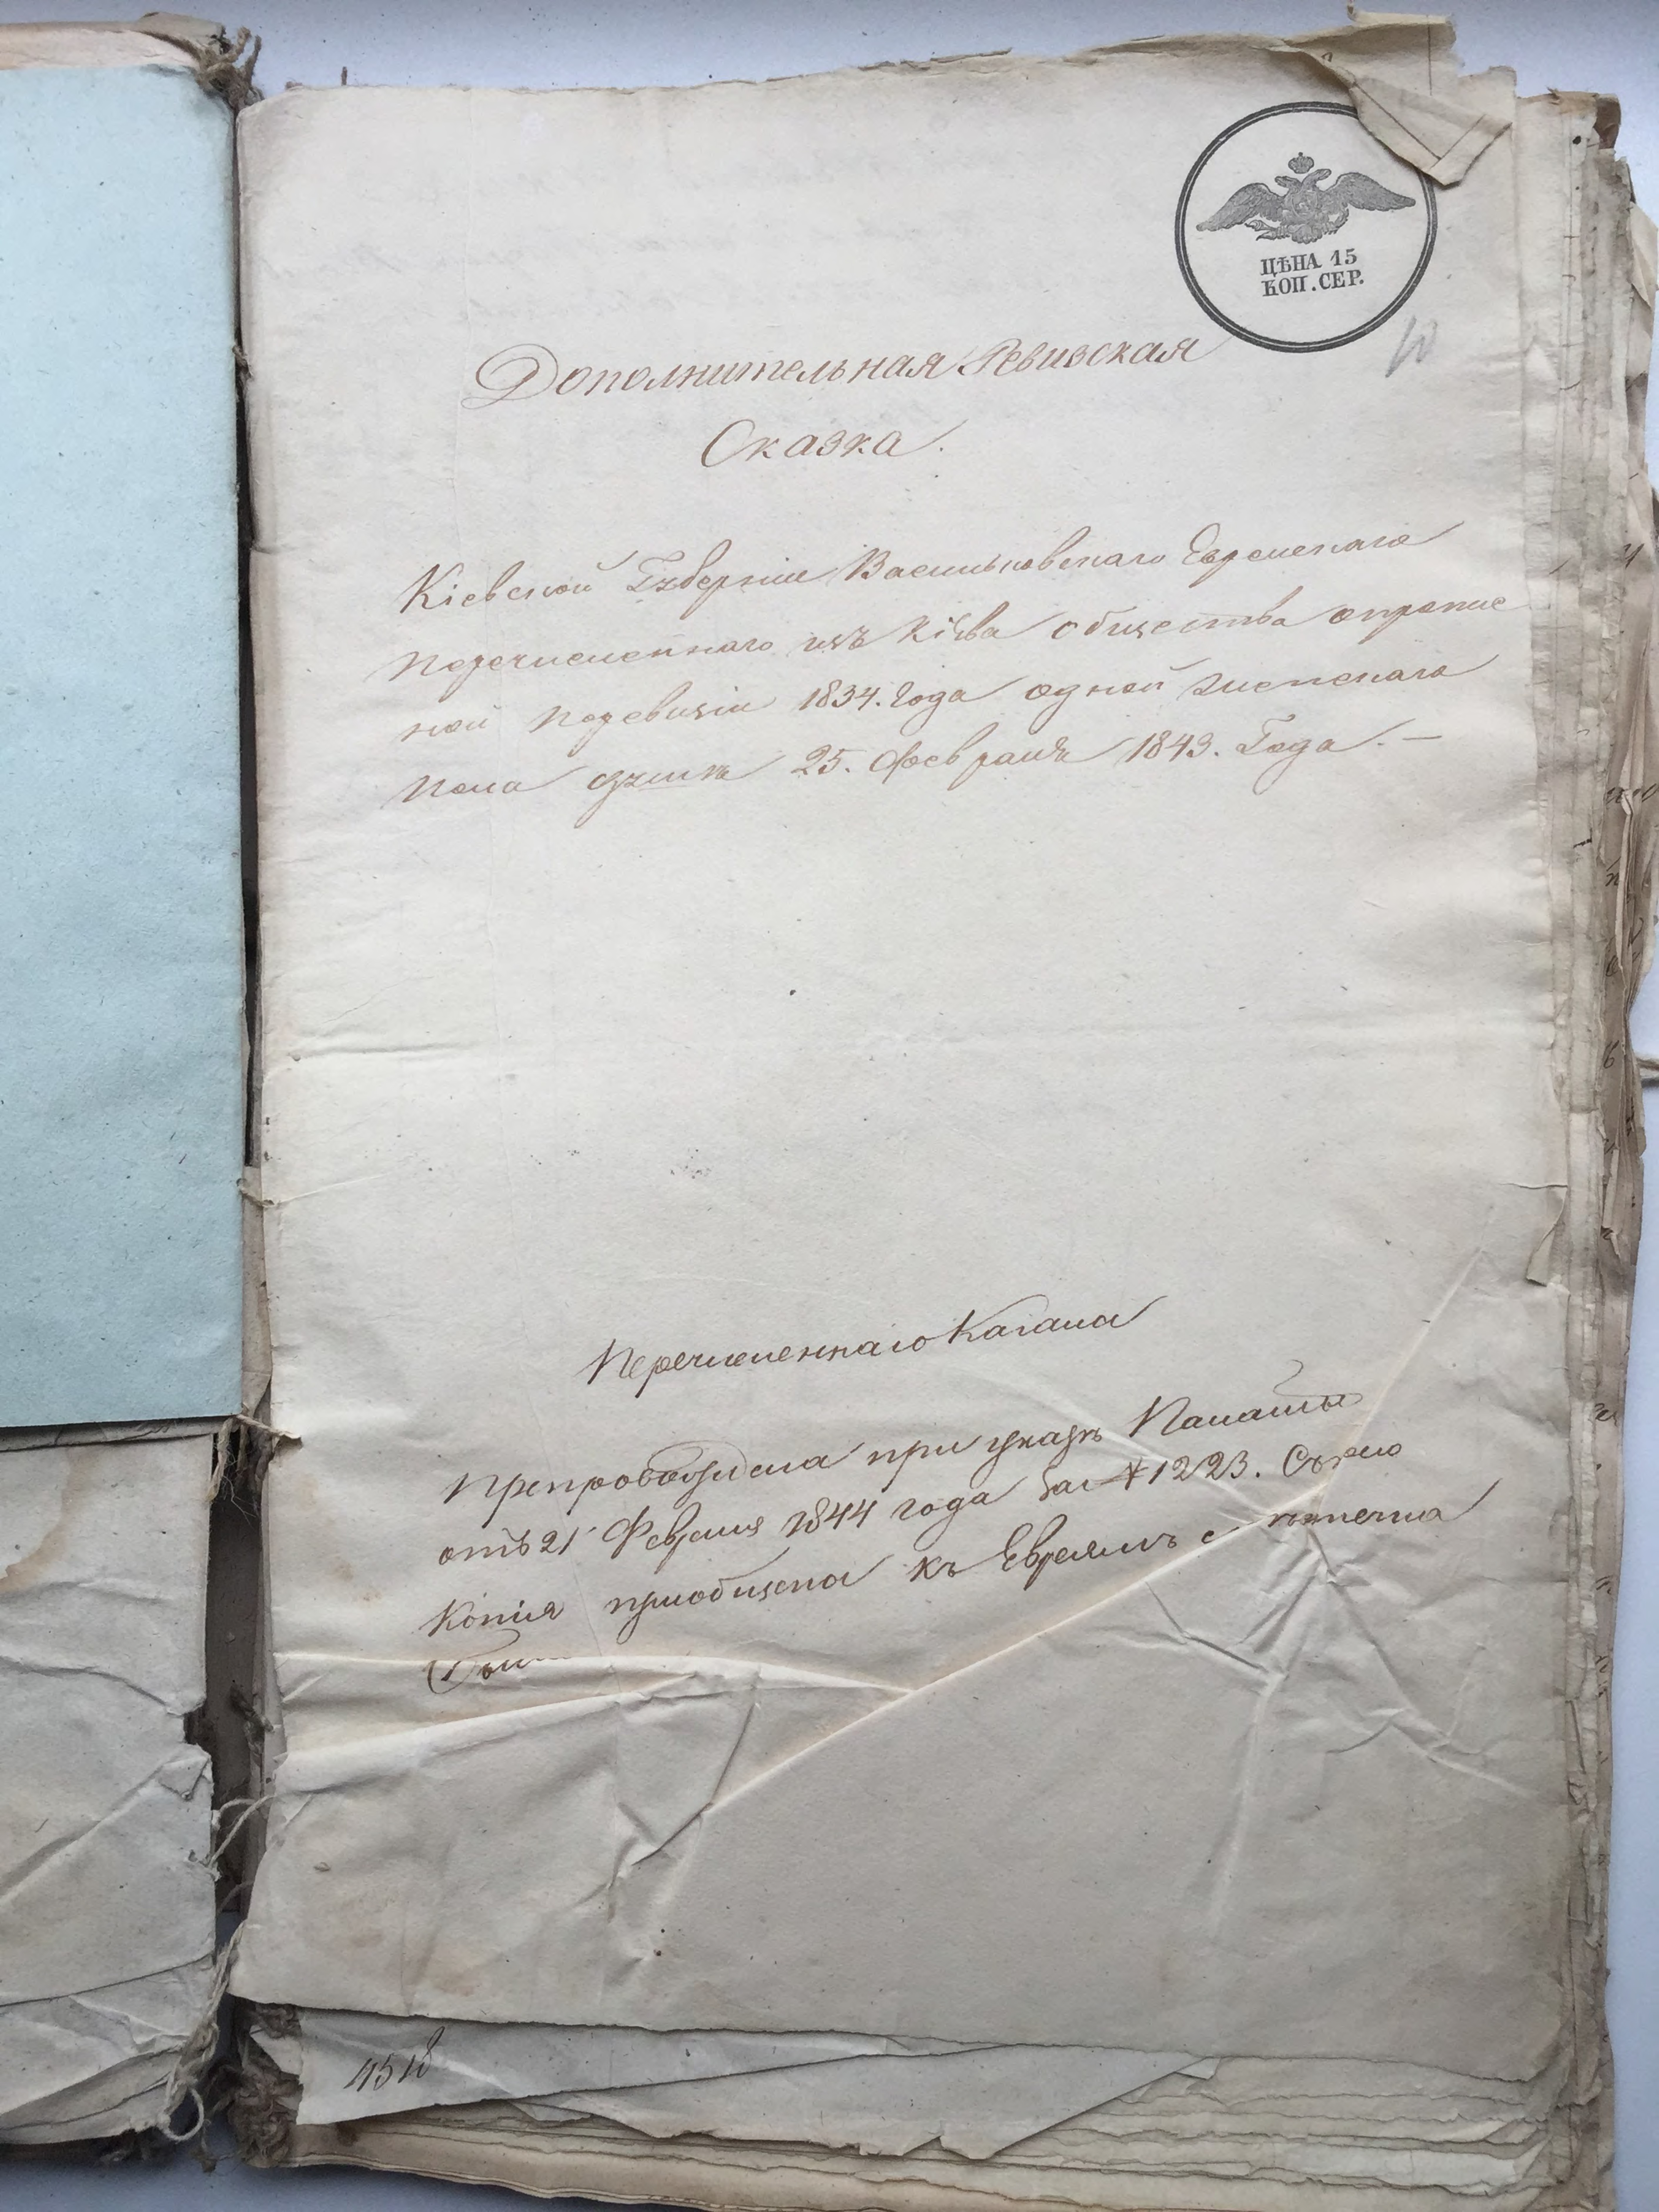 ЦѢНА 15
КОП. СЕР.
10
Дополнительная Ревизская
Сказка.
Кіевской Губерніи Васильковскаго Еврейскаго
перечисленнаго изъ Кіева общества опропис
ной поревизіи 1834. года одной женскаго
пола души 25. Февраля 1843. Года. —
Перечисленнаго Кагала
Препровождена при указѣ Палаты
отъ 21 Февраля 1844 года за № 1223. Съ
Копія приобщена къ Евреямъ с
4518